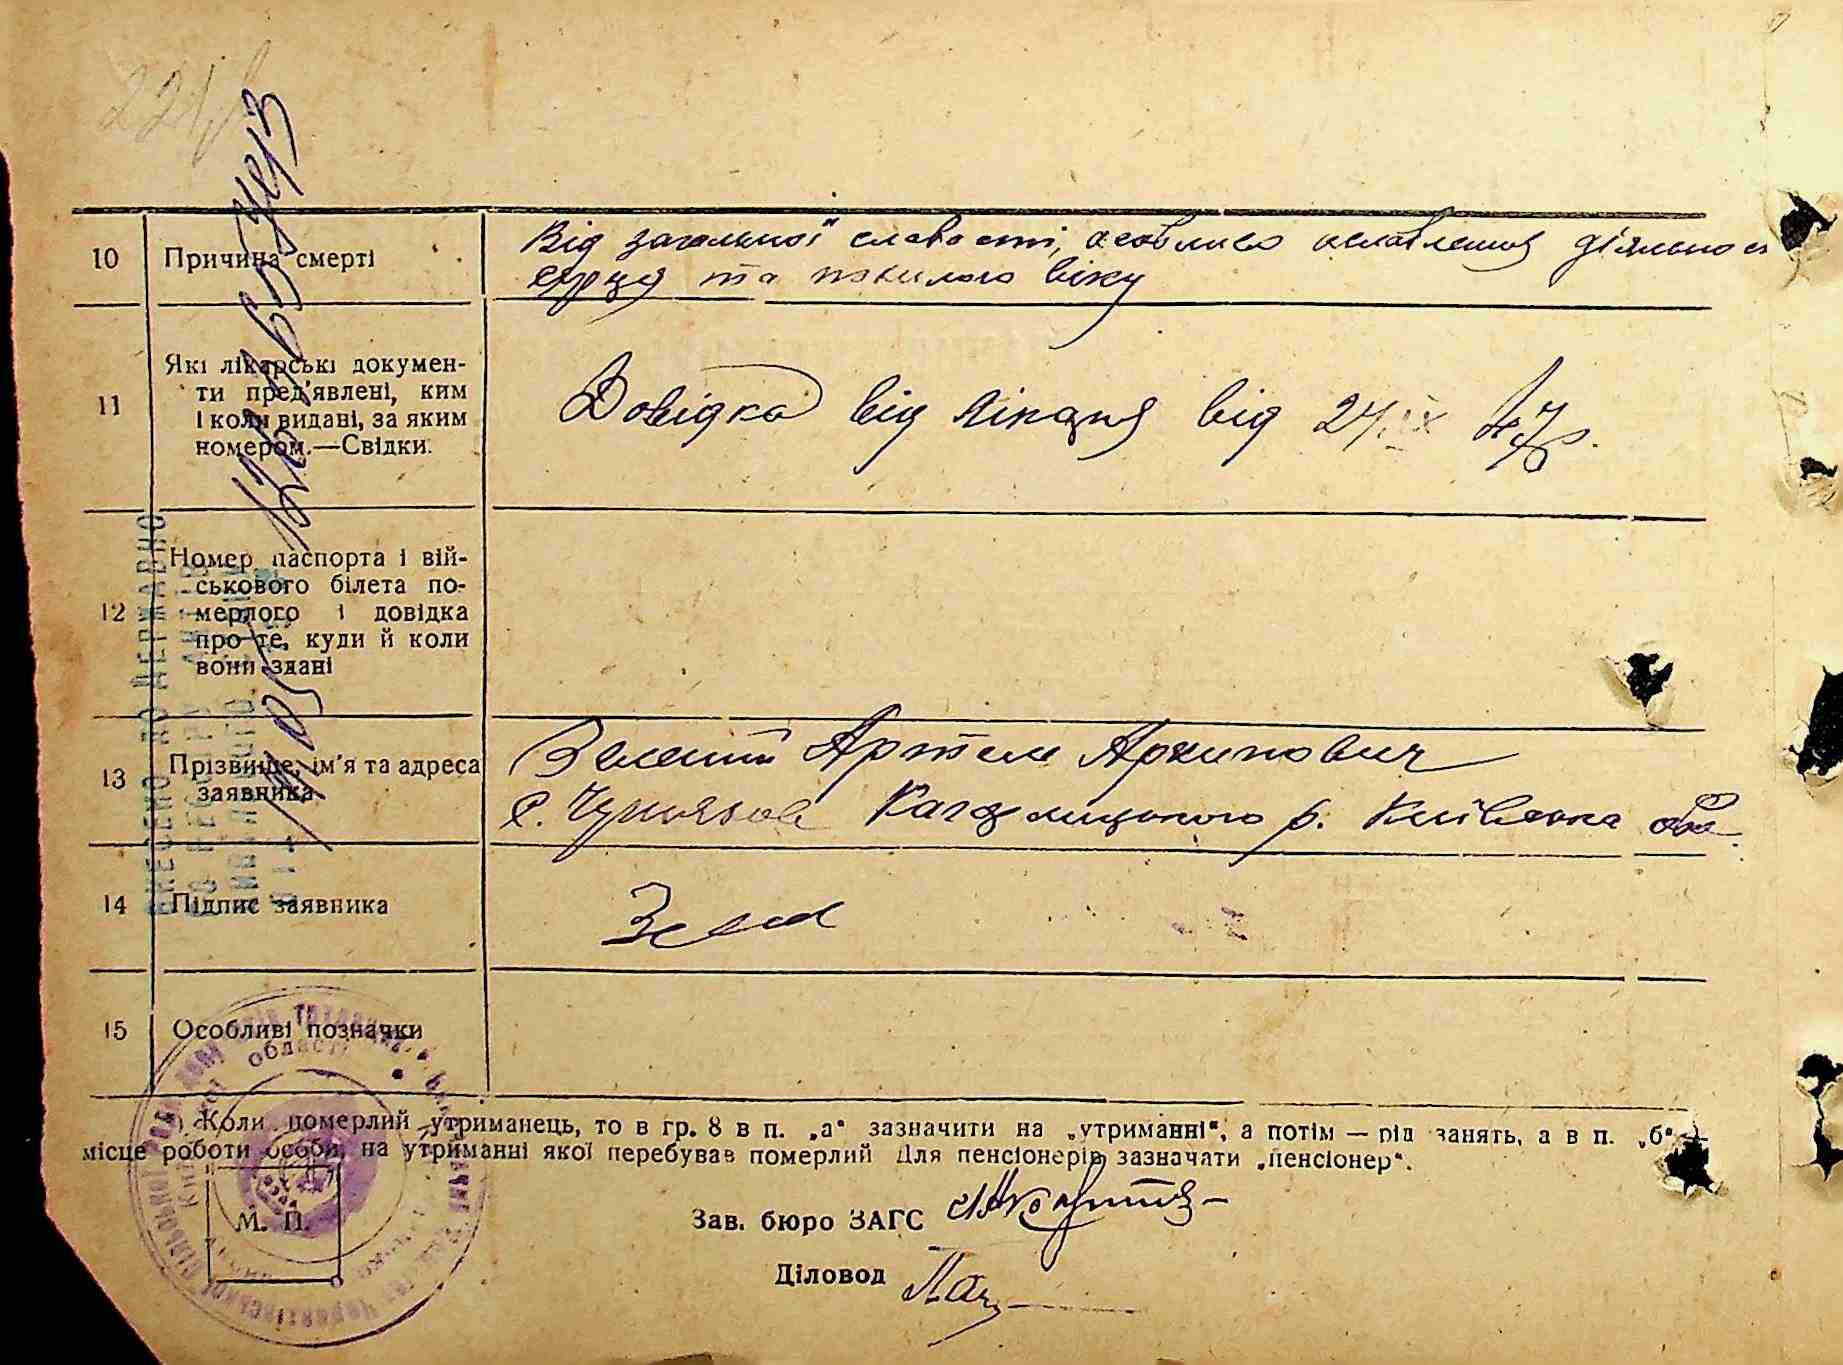 10
Причина смерті
Від загальної слабості, особливо ослаблення діяльності
серця та похилого віку
11
Які лікарські докумен-
ти пред'явлені, ким
і коли видані, за яким
номером.—Свідки.
Довідка від лікаря від 24.IX 47р.
12
Номер паспорта і вій-
ськового білета по-
мерлого і довідка
про те, куди й коли
вони здані
13
Прізвище, ім'я та адреса
заявника
Зелений Артем Архипович
с. Кагарлицького р. Київська обл.
14
Підпис заявника
Зелен
15
Особливі позначки
) Коли померлий утриманець, то в гр. 8 в п. „а" зазначити на „утриманні", а потім — рід занять, а в п. „б" —
місце роботи особи, на утриманні якої перебував померлий Для пенсіонерів зазначати „пенсіонер".
М. П.
Зав. бюро ЗАГС
Діловод
ВНЕСЕНО ДО ДЕРЖАВНО
ГО РЕЄСТРУ АКТІВ
ЦИВІЛЬНОГО СТАНУ
області